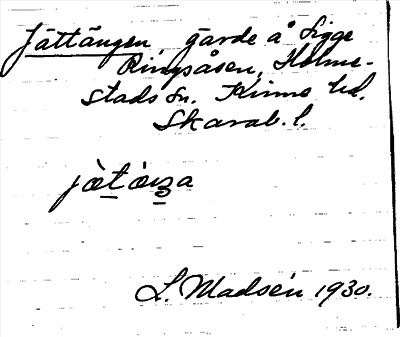 Jättängen, gärde å Sigge
Ringsåsen, Holme-
stads sn. Kinne hd.
Skarab. l.
L. Madsén 1930.